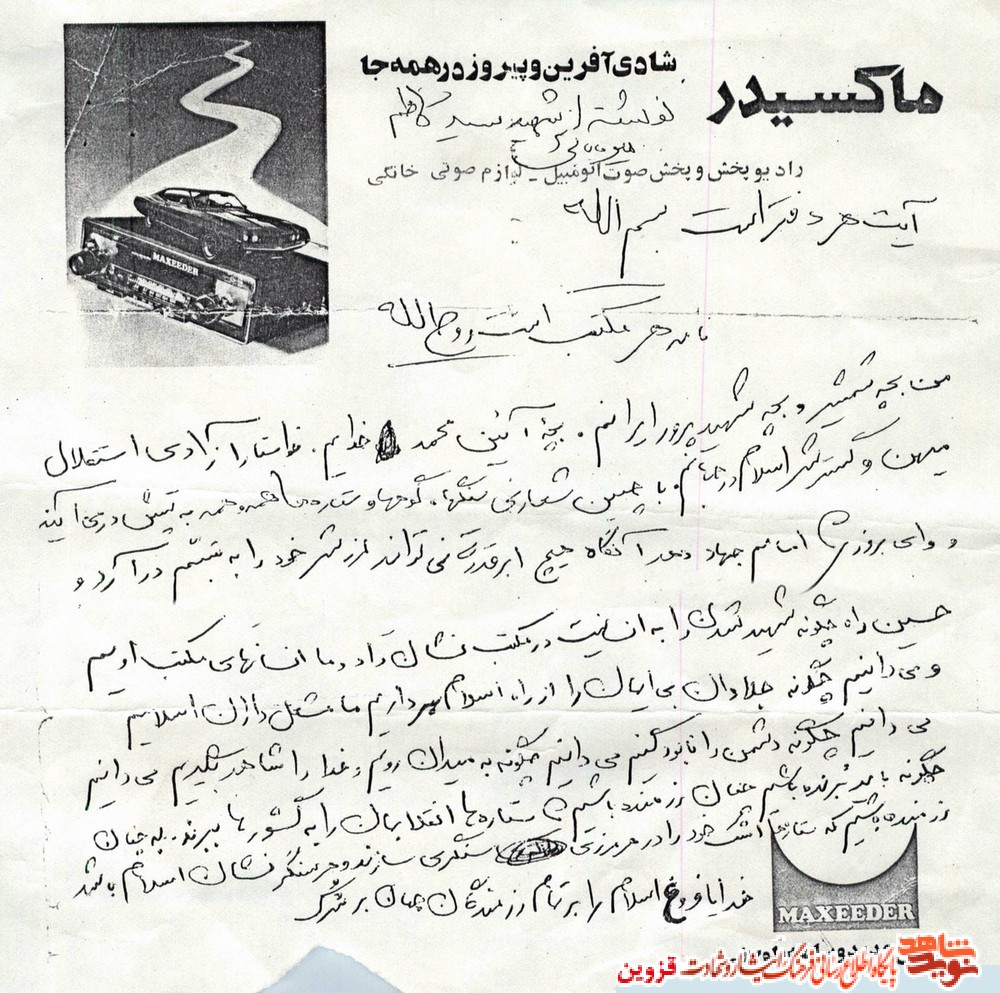 شادی‌آفرین و پیروز در همه جا
ماکسیدر
نوشته از شهید سید کاظم
رادیو پخش و پخش صوت اتومبیل - لوازم صوتی خانگی
MAXEEDER
آیت هر دفتر است بسم الله
هر مکتب است روح الله
من بچه شمشیر و بچه شهید پرور ایرانم. بچهٔ آئین محمد خدایم. خواستار آزادی استقلال
میهن و گسترش اسلام در جهانم. با چنین شعار سنگها، کوهها و ستاره‌ها همه و همه به تپش در می‌آیند
و وای بروزی امامم جهاد دهد آنگاه هیچ ابرقدرت نمی‌تواند لرزش خود را به تبسم درآورد و
حسین راه چگونه شهید شدن را به انسانیت در مکتب نشان داد و ما انسانهای مکتب اوییم
و می‌دانیم چگونه جلادان بی‌ایمان را از راه اسلام برداریم ما مشعل داران اسلامیم
می‌دانیم چگونه دشمن را نابود کنیم می‌دانیم چگونه به میدان رویم و خدا را شاهد بگیریم می‌دانیم
چگونه باید برنده باشیم چنان رزمنده باشیم تا ستاره‌ها انقلابمان را به کشورها ببرند. به چنان
رزمنده باشیم که ستاره‌ها اشک خود را در هر مرزی سنگری سازند و هر سنگر نشان اسلام باشد
خدایا فروغ اسلام را بر تمام رزمندگان جهان بر
MAXEEDER
نوید شاهد
پایگاه اطلاع رسانی فرهنگ ایثار و شهادت قزوین